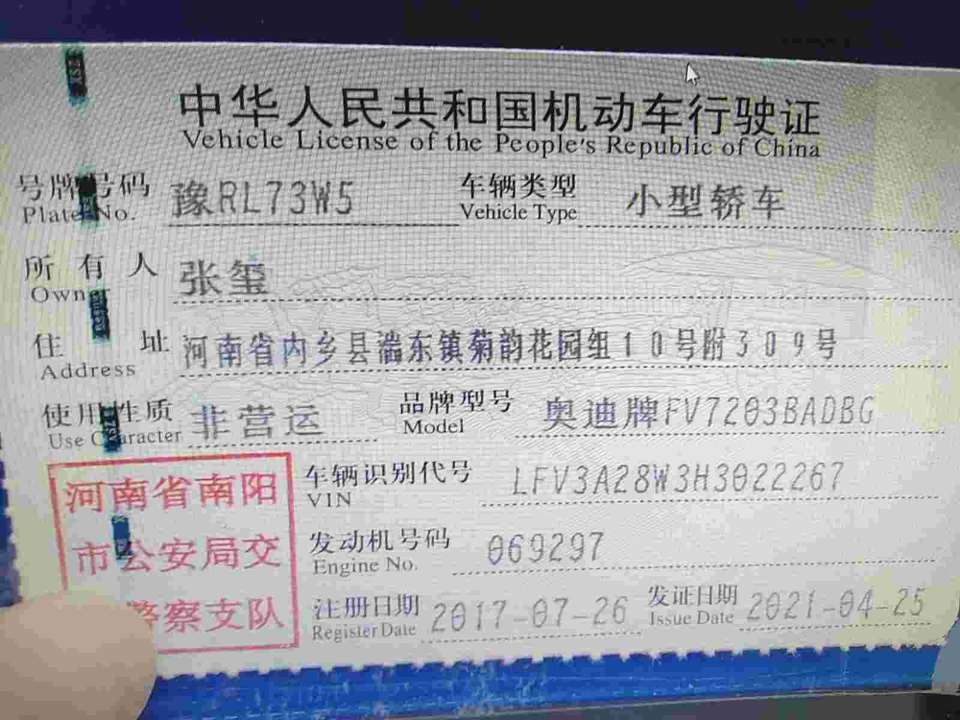 中华人民共和国机动车行驶证
Vehicle License of the People's Republic of China
号牌号码 豫RL73W5 车辆类型 小型轿车
Plate No. Vehicle Type
所有人 张玺
Owner
住址 河南省内乡县湍东镇菊韵花园组10号附309号
Address
使用性质 非营运 品牌型号 奥迪牌FV7203BADBG
Use Character Model
河南省南阳
市公安局交
警察支队
车辆识别代号 LFV3A28W3H3022267
VIN
发动机号码 069297
Engine No.
注册日期 2017-07-26 发证日期 2021-04-25
Register Date Issue Date